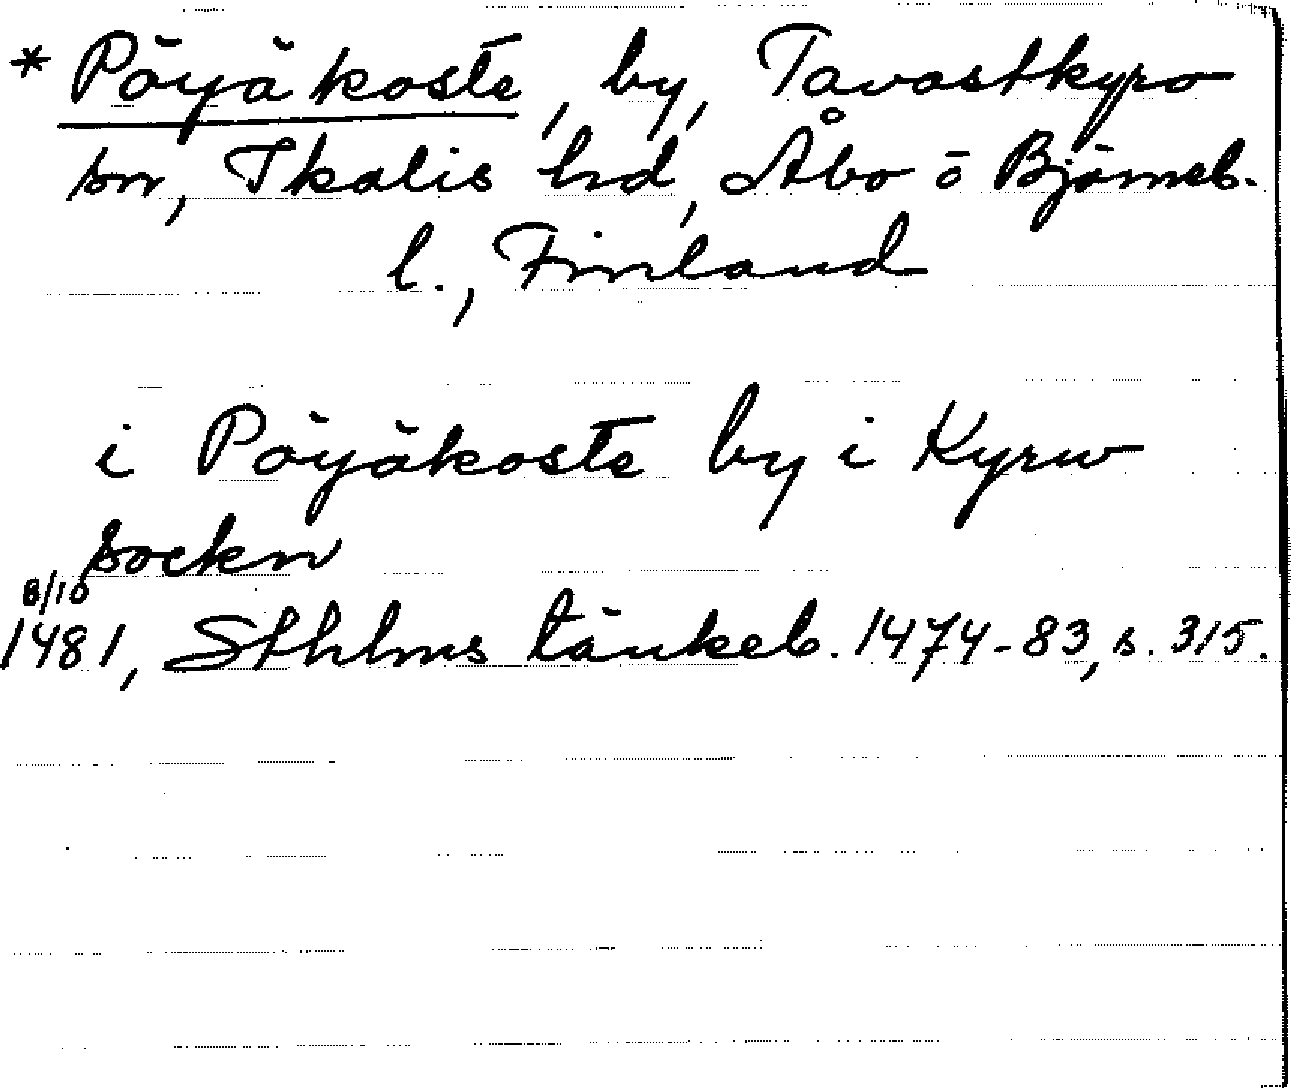 * Pöyjäkoste, by, Tavastkyro
sn, Ikalis hd, Åbo ō Björneb.
l., Finland
i Pöyjäkoste by i Kyrw
sockn
8/10
1481, Sthlms tänkeb. 1474-83, s. 315.